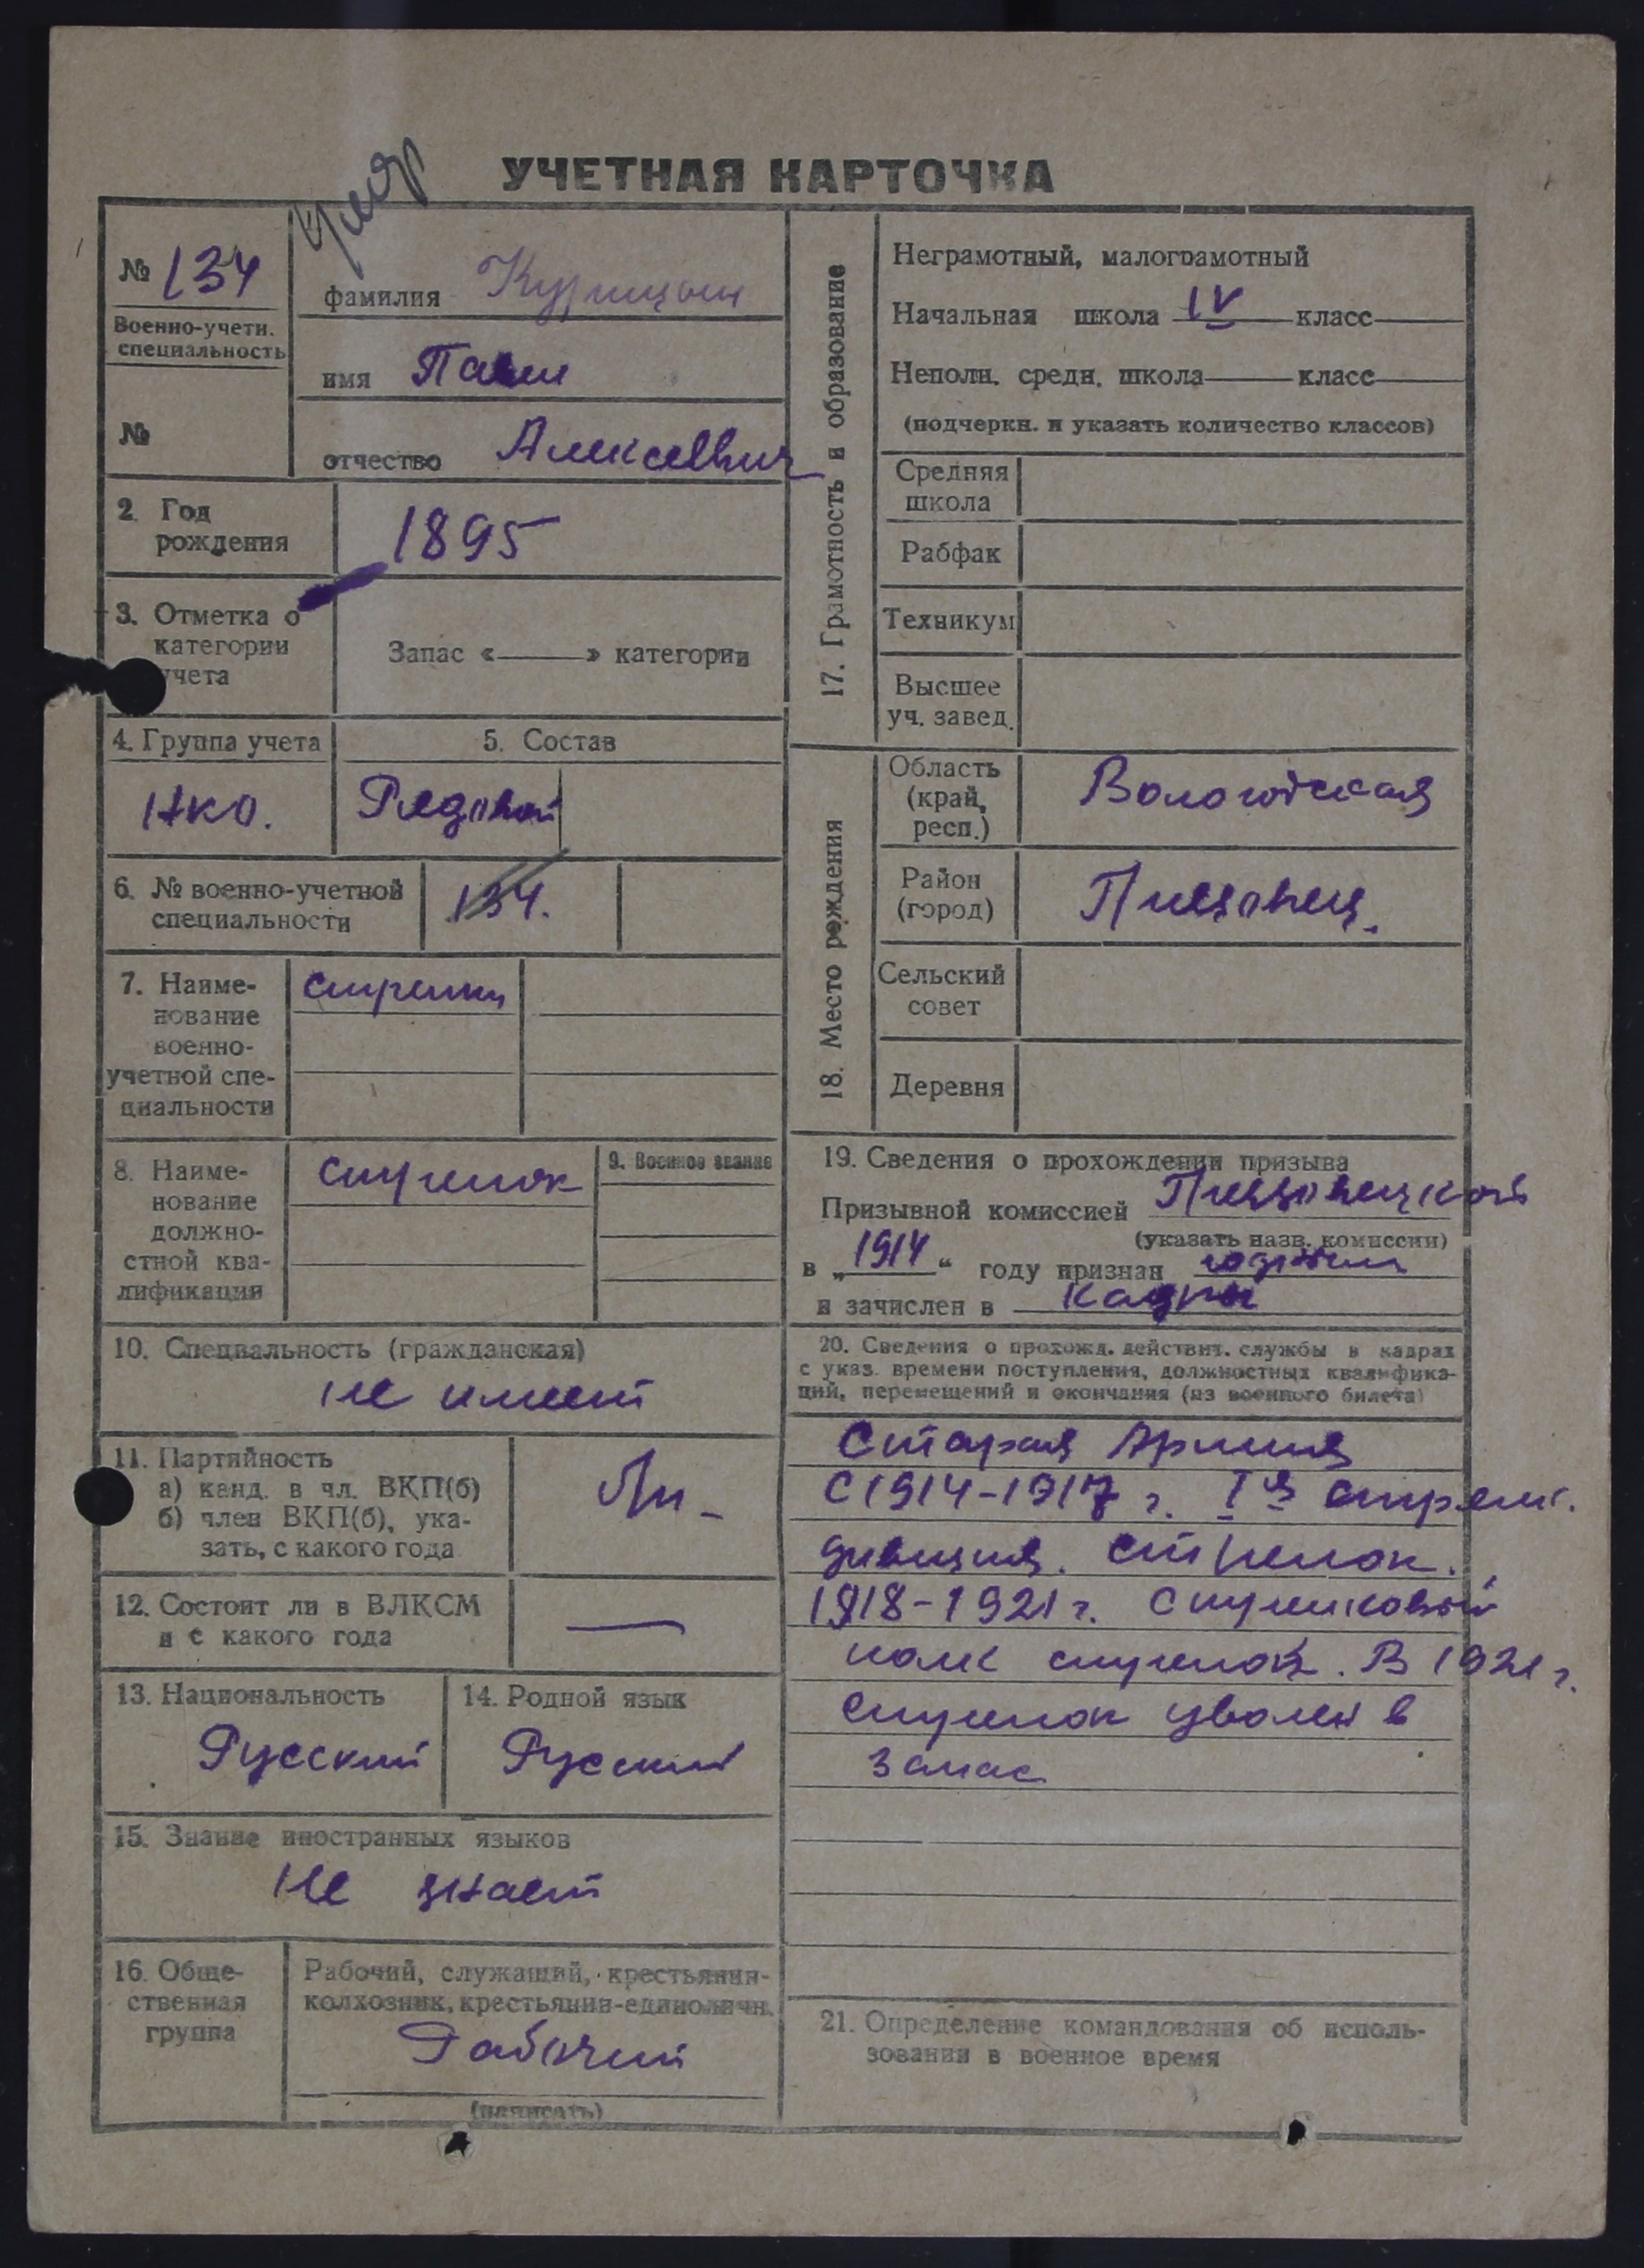 умер
УЧЕТНАЯ КАРТОЧКА
№ 134
Военно-учетн.
специальность
№
фамилия Курицын
имя Павел
отчество Алексеевич
2. Год
рождения
1895
3. Отметка о
категории
учета
Запас «——» категории
4. Группа учета
НКО.
5. Состав
Рядовой
6. № военно-учетной
специальности
134.
7. Наиме-
нование
военно-
учетной спе-
циальности
стрелки
8. Наиме-
нование
должно-
стной ква-
лификации
стрелок
9. Военное звание
10. Специальность (гражданская)
не имеет
11. Партийность
а) канд. в чл. ВКП(б)
б) член ВКП(б), ука-
зать, с какого года
12. Состоит ли в ВЛКСМ
и с какого года
—
13. Национальность
Русский
14. Родной язык
Русский
15. Знание иностранных языков
Не знает
16. Обще-
ственная
группа
Рабочий, служащий, крестьянин-
колхозник, крестьянин-единоличн.
Рабочий
(написать)
17. Грамотность и образование
Неграмотный, малограмотный
Начальная школа IV класс
Неполн. средн. школа—— класс——
(подчеркн. и указать количество классов)
Средняя
школа
Рабфак
Техникум
Высшее
уч. завед.
18. Место рождения
Область
(край,
респ.)
Вологодская
Район
(город)
Пришекснинский
Сельский
совет
Деревня
19. Сведения о прохождении призыва
Призывной комиссией
(указать назв. комиссии)
в „1914“ году признан годным
и зачислен в кадры
20. Сведения о прохожд. действит. службы в кадрах
с указ. времени поступления, должностных квалифика-
ций, перемещений и окончания (из военного билета)
Старая Армия
С 1914-1917 г. I я стрелк.
дивизия. стрелок.
1918-1921 г. Стрелковый
полк стрелок. В 1921 г.
стрелок уволен в
запас
21. Определение командования об исполь-
зовании в военное время